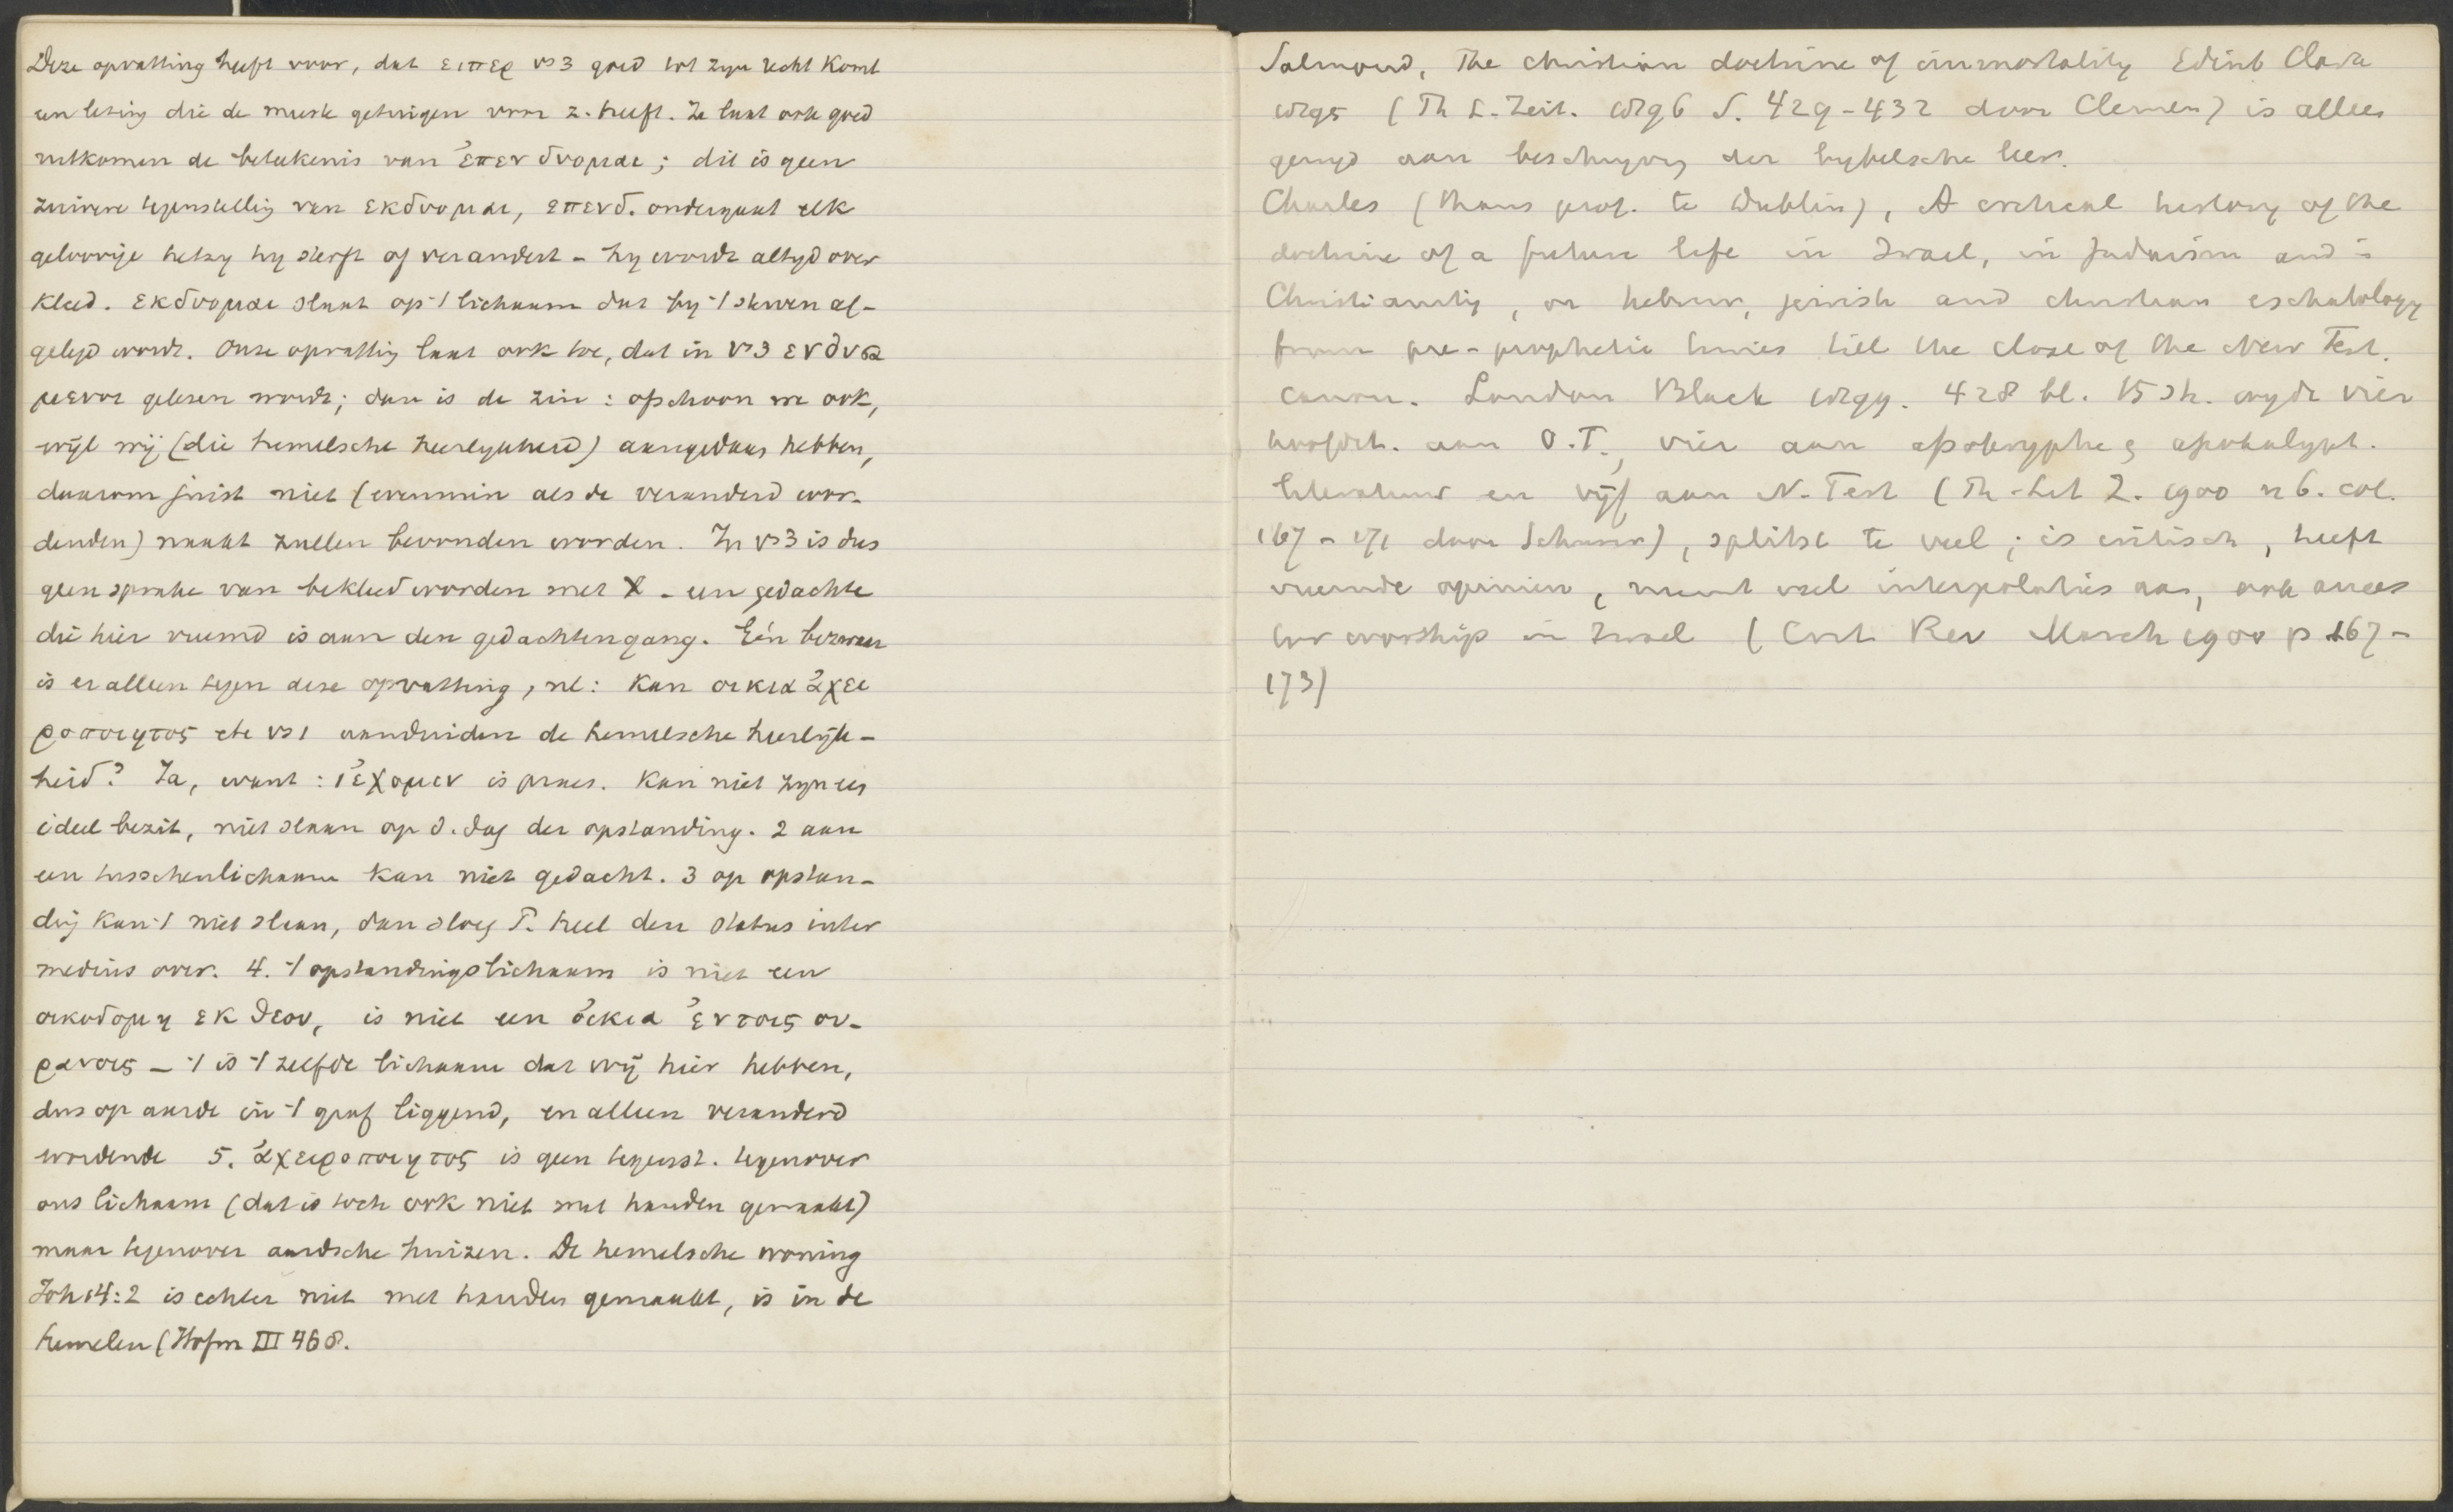 Deze opvatting heeft voor, dat ειπερ vs 3 goed tot zijn recht komt
een lezing die de meeste getuigen voor z. heeft. Ze laat ook goed
uitkomen de beteekenis van ἐπενδυομαι; dit is geen
zuivere tegenstelling van εκδυομαι, επενδ. ondergaat elk
geloovige hetzy hy sterft of verandert - hy wordt altyd over
kleed. εκδυομαι slaat op 't lichaam dat by 't sterven af-
gelegd wordt. Onze opvatting laat ook toe, dat in vs 3 ενδυσα
μενοι gelezen wordt; dan is de zin: ofschoon we ook,
wijl wij (die hemelsche heerlykheid) aangedaan hebben,
daarom juist niet (evenmin als de veranderd wor-
denden) naakt zullen bevonden worden. In vs 3 is dus
geen sprake van bekleed worden met X - een gedachte
die hier vreemd is aan den gedachtengang. Eén bezwaar
is er alleen tegen deze opvatting, nl: kan οικια ἀχει
ροποιητος etc vs 1 aanduiden de hemelsche heerlijk-
heid? Ja, want: 1 ἐχομεν is praes. kan niet zyn een
ideel bezit, niet slaan op d. dag der opstanding. 2 aan
een tusschenlichaam kan niet gedacht. 3 op opstan-
ding kan 't niet slaan, dan sloeg P. heel den status inter
medius over. 4. 't opstandingslichaam is niet een
οικοδομη εκ θεου, is niet een ὀικια ἐν τοις ου-
ρανοις - 't is 't zelfde lichaam dat wij hier hebben,
dus op aarde in 't graf liggend, en alleen veranderd
wordende 5. ἀχειροποιητος is geen tegenst. tegenover
ons lichaam (dat is toch ook niet met handen gemaakt)
maar tegenover aardsche huizen. De hemelsche woning
Joh 14:2 is echter niet met handen gemaakt, is in de
hemelen (Hofm III 468.
Salmond, The christian doctrine of immortality Edinb Clark
1895 (Th L. Zeit. 1896 S. 429-432 door Clemen) is alleen
gewyd aan beschryving der bybelsche leer.
Charles (thans prof. te Dublin), A critical history of the
doctrine of a future life in Israel, in Judaism and in
Christianity, or hebrew, jewish and christian eschatology
from pre-prophetic times till the close of the New Test.
canon. London Black 1899. 428 bl. 15 sh. wydt vier
hoofdst. aan O.T., vier aan apokryphe & apokalypt.
literatuur en vijf aan N. Test (Th. Lit Z. 1900 n 6. col.
167-171 door Schurer), splitst te veel; is critisch, heeft
vreemde opinien, neemt veel interpolaties aan, ook ances
tor worship in Israel (Crit. Rev March 1900 p 167-
173)